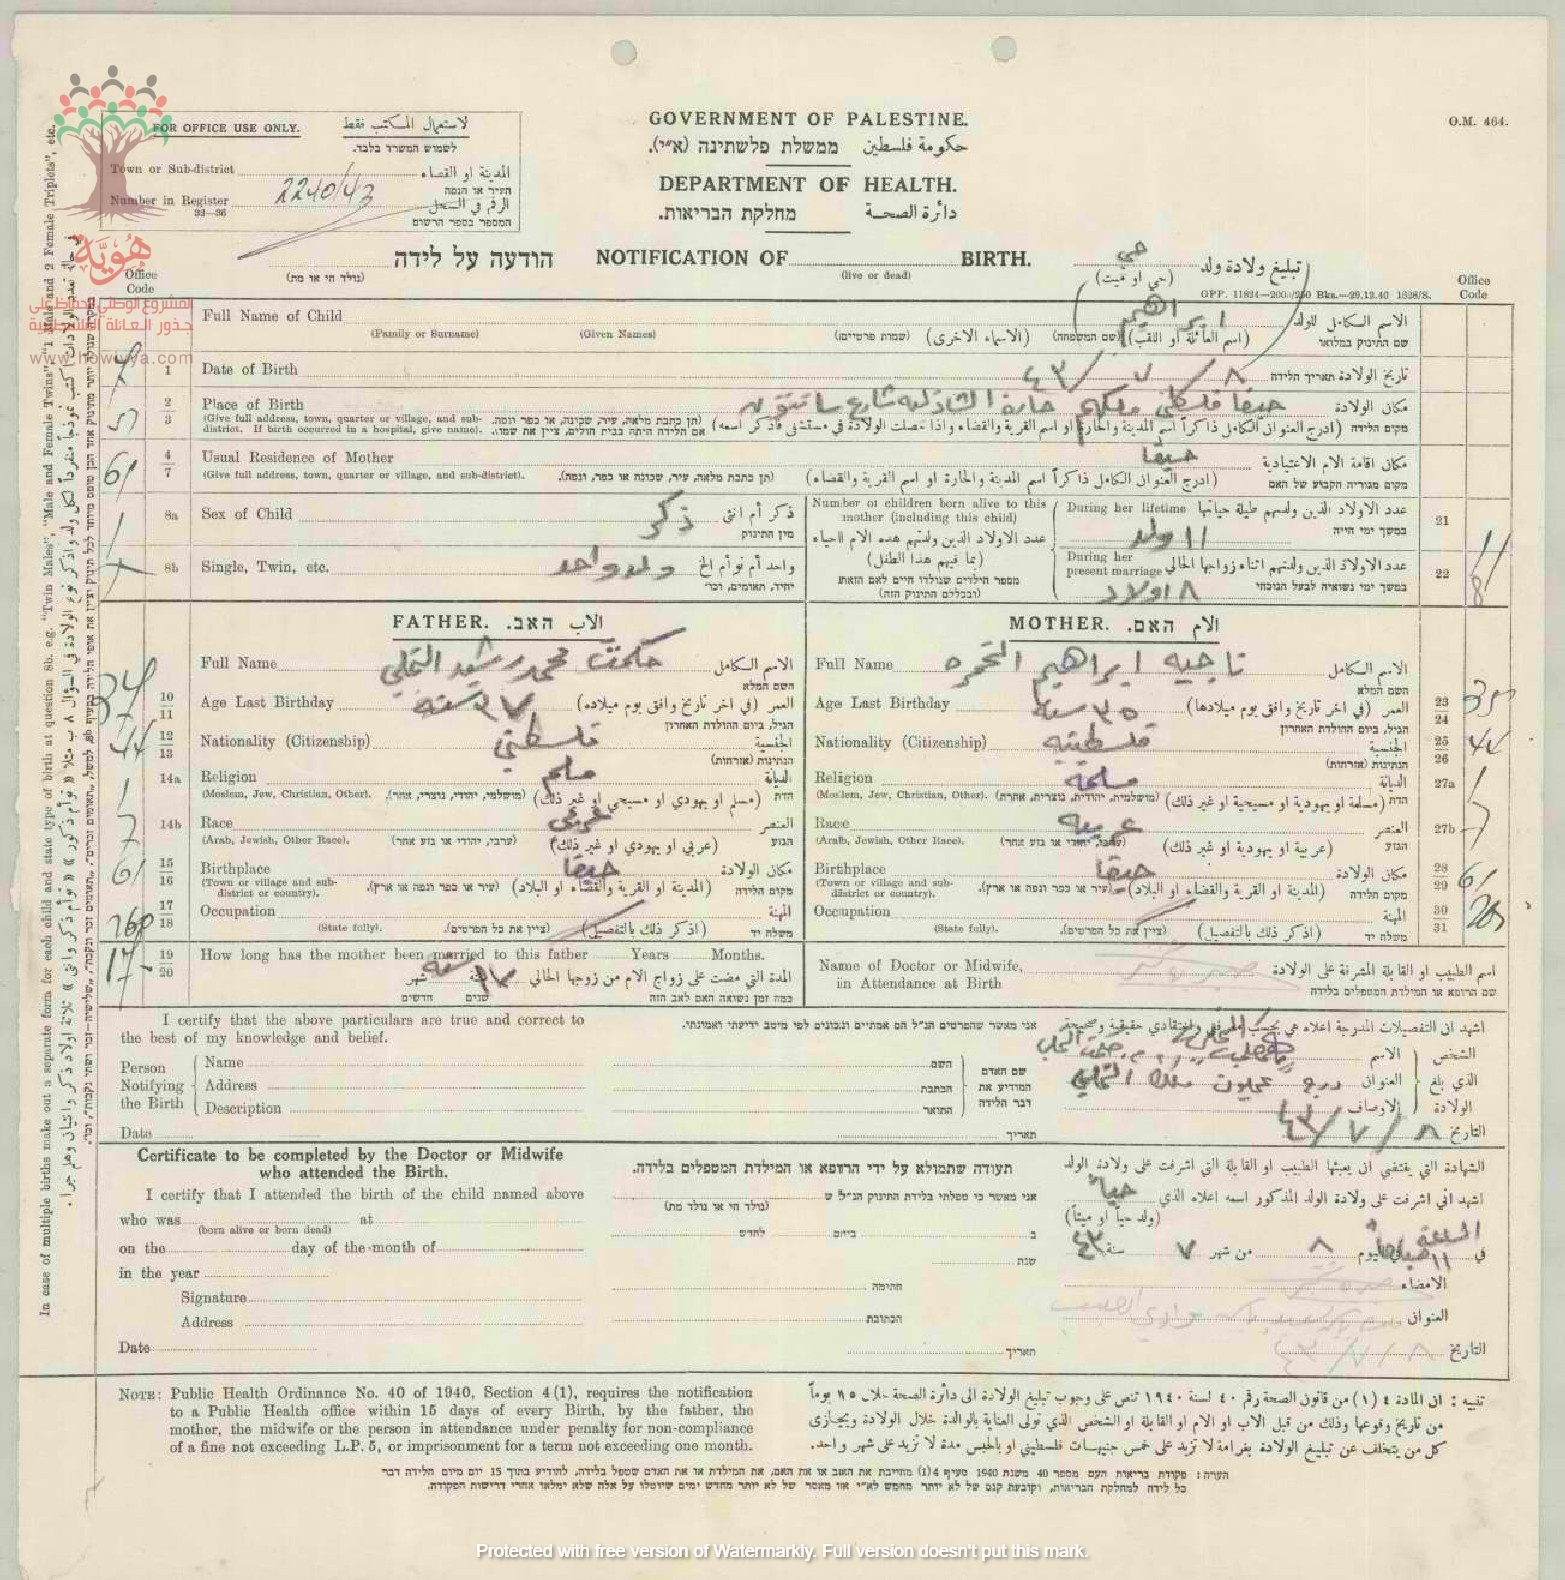 O.M. 464.
GOVERNMENT OF PALESTINE.
حكومة فلسطين ממשלת פלשתינה (א״י).
DEPARTMENT OF HEALTH.
دائرة الصحة מחלקת הבריאות.
FOR OFFICE USE ONLY. لاستعمال المكتب فقط
לשמוש המשרד בלבד.
Town or Sub-district المدينة او القضاء
העיר או הנפה
Number in Register 2240/43 الرقم في السجل
32—36 המספר בספר הרשום
הודעה על לידה NOTIFICATION OF BIRTH. تبليغ ولادة ولد حي
(נולד חי או מת) (live or dead) (حي او ميت)
GPP. 11834—2000/250 Bks.—29.12.40 1628/S.
Office Code Office Code
هُويّة
المشروع الوطني للحفاظ على
جذور العائلة الفلسطينية
www.howiyya.com
Full Name of Child ابراهيم الاسم الكامل للولد
(Family or Surname) (Given Names) (שמות פרטיים) (الاسماء الاخرى) (שם המשפחה) (اسم العائلة او اللقب) שם התינוק במלואו
1 Date of Birth ٨ / ٧ / ٤٣ تاريخ الولادة תאריך הלידה
2 3 Place of Birth حيفا فلسطين حارة شارع مكان الولادة
(Give full address, town, quarter or village, and sub-district. If birth occurred in a hospital, give name). (תן כתבת מלאה, עיר, שכונה, או כפר ונפה. אם הלידה היתה בבית חולים, ציין את שמו). (ادرج العنوان الكامل ذاكراً اسم المدينة والحارة او اسم القرية والقضاء واذا حصلت الولادة في مستشفى فاذكر اسمه) מקום הלידה
4 7 Usual Residence of Mother حيفا مكان اقامة الام الاعتيادية
(Give full address, town, quarter or village, and sub-district). (תן כתבת מלאה, עיר, שכונה או כפר, ונפה). (ادرج العنوان الكامل ذاكراً اسم المدينة والحارة او اسم القرية والقضاء) מקום מגוריה הקבוע של האם
8a Sex of Child ذكر ذكر أم انثى
מין התינוק
8b Single, Twin, etc. ولد واحد واحد أم توأم الخ
יחיד, תאומים, וכו׳
Number of children born alive to this mother (including this child)
عدد الاولاد الذين ولدتهم هذه الام احياء
(بما فيهم هذا الطفل)
מספר הילדים שנולדו חיים לאם הזאת
(ובכללם התינוק הזה)
During her lifetime عدد الاولاد الذين ولدتهم طيلة حياتها 21
١١ ولد במשך ימי חייה
During her present marriage عدد الاولاد الذين ولدتهم اثناء زواجها الحالي 22
٨ اولاد במשך ימי נשואיה לבעל הנוכחי
FATHER. האב. الاب
Full Name حكمت محمد رشيد النحلي الاسم الكامل
השם המלא
10 11 Age Last Birthday ٣٧ سنة العمر (في اخر تاريخ وافق يوم ميلاده)
הגיל, ביום ההולדת האחרון
12 13 Nationality (Citizenship) فلسطيني الجنسية
הנתינות (אזרחות)
14a Religion مسلم الديانة
(Moslem, Jew, Christian, Other). (מושלמי, יהודי, נוצרי, אחר). (مسلم او يهودي او مسيحي او غير ذلك) הדת
14b Race عربي العنصر
(Arab, Jewish, Other Race). (ערבי, יהודי או גזע אחר) (عربي او يهودي او غير ذلك) הגזע
15 16 Birthplace حيفا مكان الولادة
(Town or village and sub-district or country). (עיר או כפר ונפה או ארץ). (المدينة او القرية والقضاء او البلاد) מקום הלידה
17 18 Occupation المهنة
(State fully). (ציין את כל הפרטים). (اذكر ذلك بالتفصيل) משלח יד
19 20 How long has the mother been married to this father Years Months.
المدة التي مضت على زواج الام من زوجها الحالي ١٧ سنة شهر
כמה זמן נשואה האם לאב הזה שנים חדשים
MOTHER. האם. الام
Full Name ناجيه ابراهيم الخمره الاسم الكامل
השם המלא
Age Last Birthday ٣٥ سنة العمر (في اخر تاريخ وافق يوم ميلادها) 23 24
הגיל, ביום ההולדת האחרון
Nationality (Citizenship) فلسطينيه الجنسية 25 26
הנתינות (אזרחות)
Religion مسلمة الديانة 27a
(Moslem, Jew, Christian, Other). (מושלמית, יהודית, נוצרית, אחרת) (مسلمة او يهودية او مسيحية او غير ذلك) הדת
Race عربيه العنصر 27b
(Arab, Jewish, Other Race). (ערבי, יהודי או גזע אחר) (عربية او يهودية او غير ذلك) הגזע
Birthplace حيفا مكان الولادة 28 29
(Town or village and sub-district or country). (עיר או כפר ונפה או ארץ). (المدينة او القرية والقضاء او البلاد) מקום הלידה
Occupation المهنة 30 31
(State fully). (ציין את כל הפרטים). (اذكر ذلك بالتفصيل) משלח יד
Name of Doctor or Midwife, اسم الطبيب او القابلة المشرفة على الولادة
in Attendance at Birth שם הרופא או המילדת המטפלים בלידה
I certify that the above particulars are true and correct to the best of my knowledge and belief.
אני מאשר שהפרטים הנ״ל הם אמתיים ונכונים לפי מיטב ידיעתי ואמונתי.
اشهد ان التفصيلات المدرجة اعلاه هي بحسب معرفتي واعتقادي حقيقية وصحيحة
Person Notifying the Birth Name השם الاسم الشخص
Address הכתבת العنوان الذي بلغ
Description התואר الاوصاف الولادة
שם האדם המודיע את דבר הלידה
Date תאריך ٨ / ٧ / ٤٣ التاريخ
Certificate to be completed by the Doctor or Midwife who attended the Birth.
תעודה שתמולא על ידי הרופא או המילדת המטפלים בלידה.
الشهادة التي يقتضي ان يعبئها الطبيب او القابلة التي اشرفت على ولادة الولد
I certify that I attended the birth of the child named above אני מאשר כי טפלתי בלידת התינוק הנ״ל ש اشهد اني اشرفت على ولادة الولد المذكور اسمه اعلاه الذي حياً
who was at (born alive or born dead) (נולד חי או נולד מת) (ولد حياً او ميتاً)
on the day of the month of ב ביום לחדש في الساعة ١١ صباحاً في اليوم ٨ من شهر ٧ سنة ٤٣
in the year שנת
Signature חתימה الامضاء
Address הכתובת العنوان
Date תאריך ٨ / ٧ / ٤٣ التاريخ
NOTE: Public Health Ordinance No. 40 of 1940, Section 4 (1), requires the notification
to a Public Health office within 15 days of every Birth, by the father, the
mother, the midwife or the person in attendance under penalty for non-compliance
of a fine not exceeding L.P. 5, or imprisonment for a term not exceeding one month.
تنبيه : ان المادة ٤ (١) من قانون الصحة رقم ٤٠ لسنة ١٩٤٠ تنص على وجوب تبليغ الولادة الى دائرة الصحة خلال ١٥ يوماً
من تاريخ وقوعها وذلك من قبل الاب او الام او القابلة او الشخص الذي تولى العناية بالوالدة خلال الولادة ويجازى
كل من يتخلف عن تبليغ الولادة بغرامة لا تزيد على خمس جنيهات فلسطيني او بالحبس مدة لا تزيد على شهر واحد.
הערה: פקודת בריאות העם מספר 40 משנת 1940 סעיף 4(1) מחייבת את האב או את האם, את המילדת או את האדם שטפל בלידה, להודיע בתוך 15 יום מיום הלידה דבר
כל לידה למחלקת הבריאות, וקובעת קנס של לא יותר מחמש לא״י או מאסר של לא יותר מחדש ימים שיוטלו על אלה שלא ימלאו אחרי דרישות הפקודה.
In case of multiple births make out a separate form for each child and state type of birth at question 8b. e.g. "Twin Males", "Male and Female Twins", "1 Male and 2 Female Triplets", etc.
Protected with free version of Watermarkly. Full version doesn't put this mark.